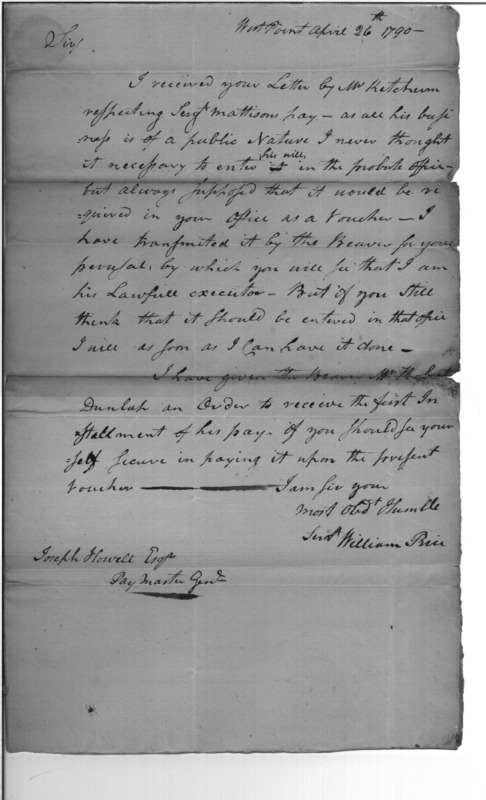 West Point April 26th 1790—
Sir,
I received your Letter by Mr Ketchum
respecting Sergt Mattisons pay — as all his busi
ness is of a public Nature I never thought
it necessary to enter his will in the probate office—
but always supposed that it would be re
=quired in your office as a Voucher — I
have transmited it by the Bearer for your
perusal, by which you will see that I am
his Lawfull executor — But if you still
think that it should be entered in that office
I will as soon as I Can have it done —
I have given the Bearer Mr
Dunlap an Order to receive the first In
=stallment of his pay. if you should see your
=self Secure in paying it upon the present
Voucher ——— I am Sir your
most Obdt Humble
Servt William Price
Joseph Howell Esqr
Pay Master Genl